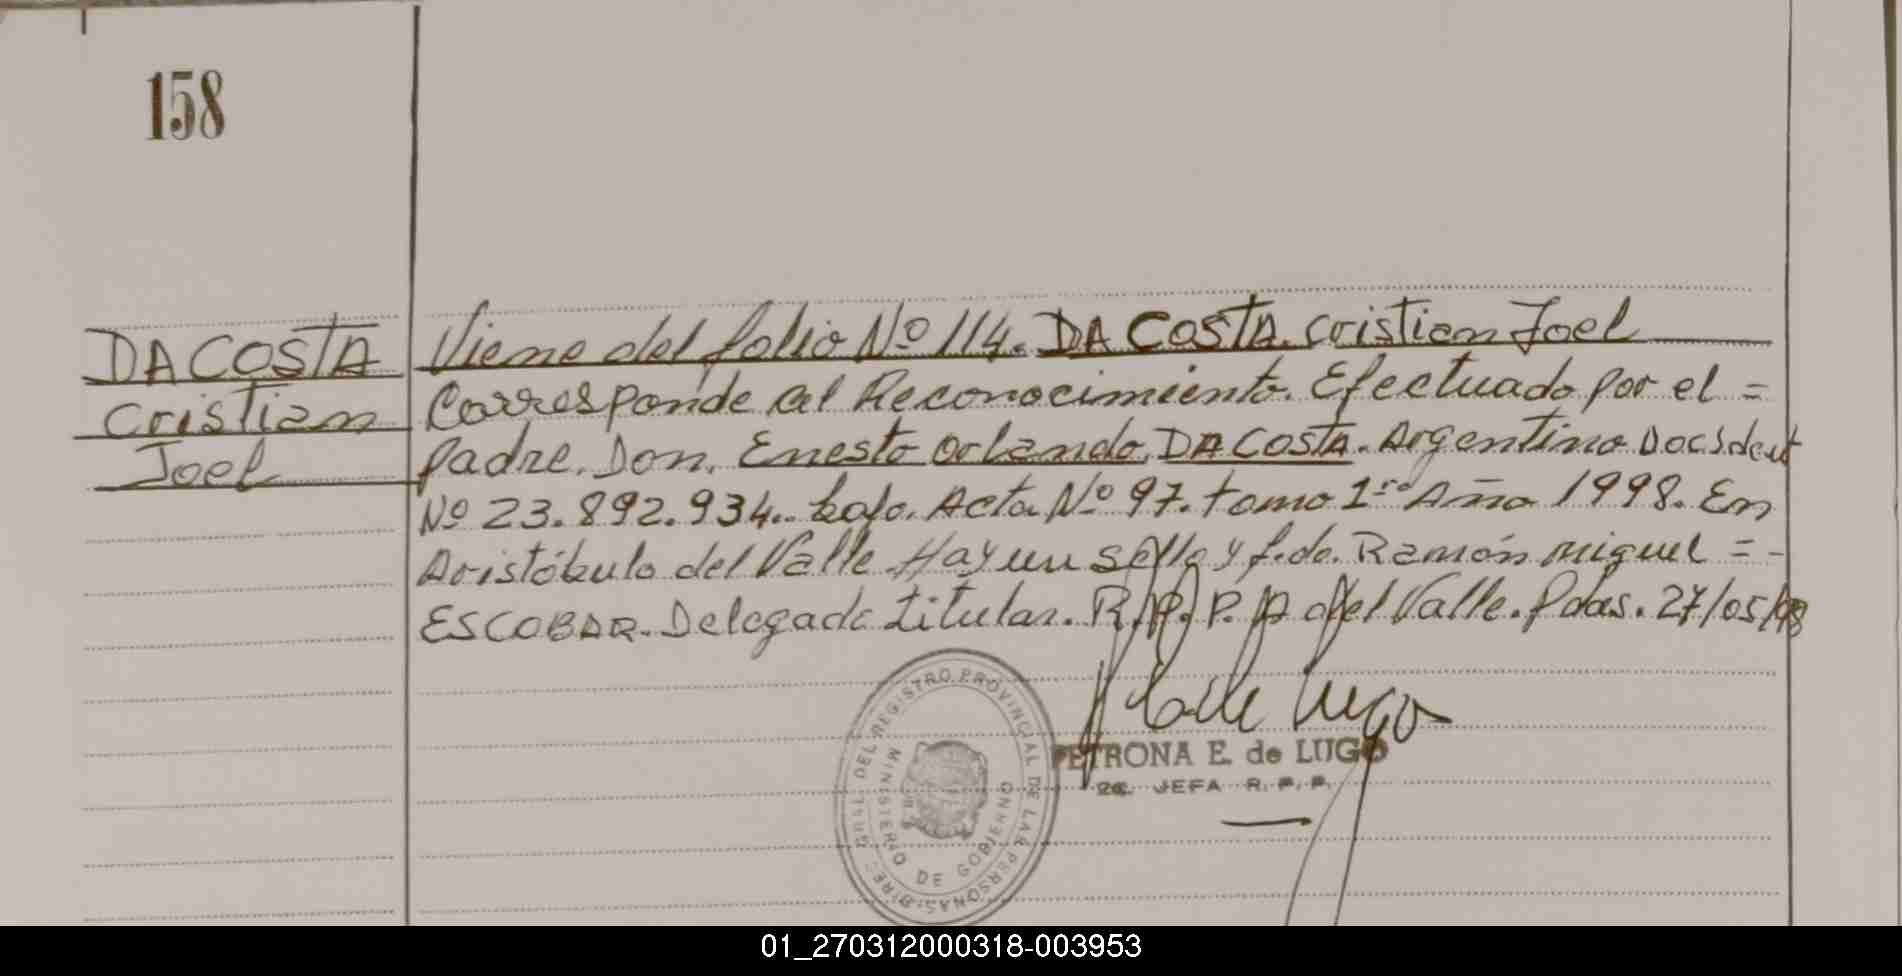 158
DA COSTA
Cristian
Joel
Viene del folio Nº 114. DA COSTA. Cristian Joel
Corresponde al Reconocimiento. Efectuado por el =
padre. Don. Enesto Orlando. DA COSTA. Argentino Doc. Ident
Nº 23.892.934.. bajo. Acta Nº 97. tomo 1ro Año 1998. En
Aristóbulo del Valle. Hay un sello y f.do. Ramón Miguel = -
ESCOBAR. Delegado titular. R.P.P. A del Valle. Pdas. 27/05/98
PETRONA E. de LUGO
2a. JEFA R. P. P.
DIREC. GRAL. DEL REGISTRO PROVINCIAL DE LAS PERSONAS
MINISTERIO DE GOBIERNO
01_270312000318-003953